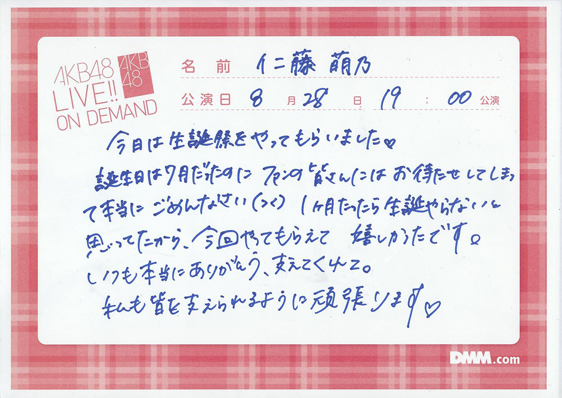 AKB48
LIVE!!
ON DEMAND
AKB
48
名前 仁藤萌乃
公演日 8月28日 19:00公演
今日は生誕祭をやってもらいました♡
誕生日は7月だったのに ファンの皆さんにはお待たせしてしまっ
て本当にごめんなさい(>_<) 1ヶ月たったら生誕やらないと
思ってたから、今回やってもらえて 嬉しかったです。
いつも本当にありがとう、支えてくれて。
私も皆を支えられるように頑張ります♡
DMM.com